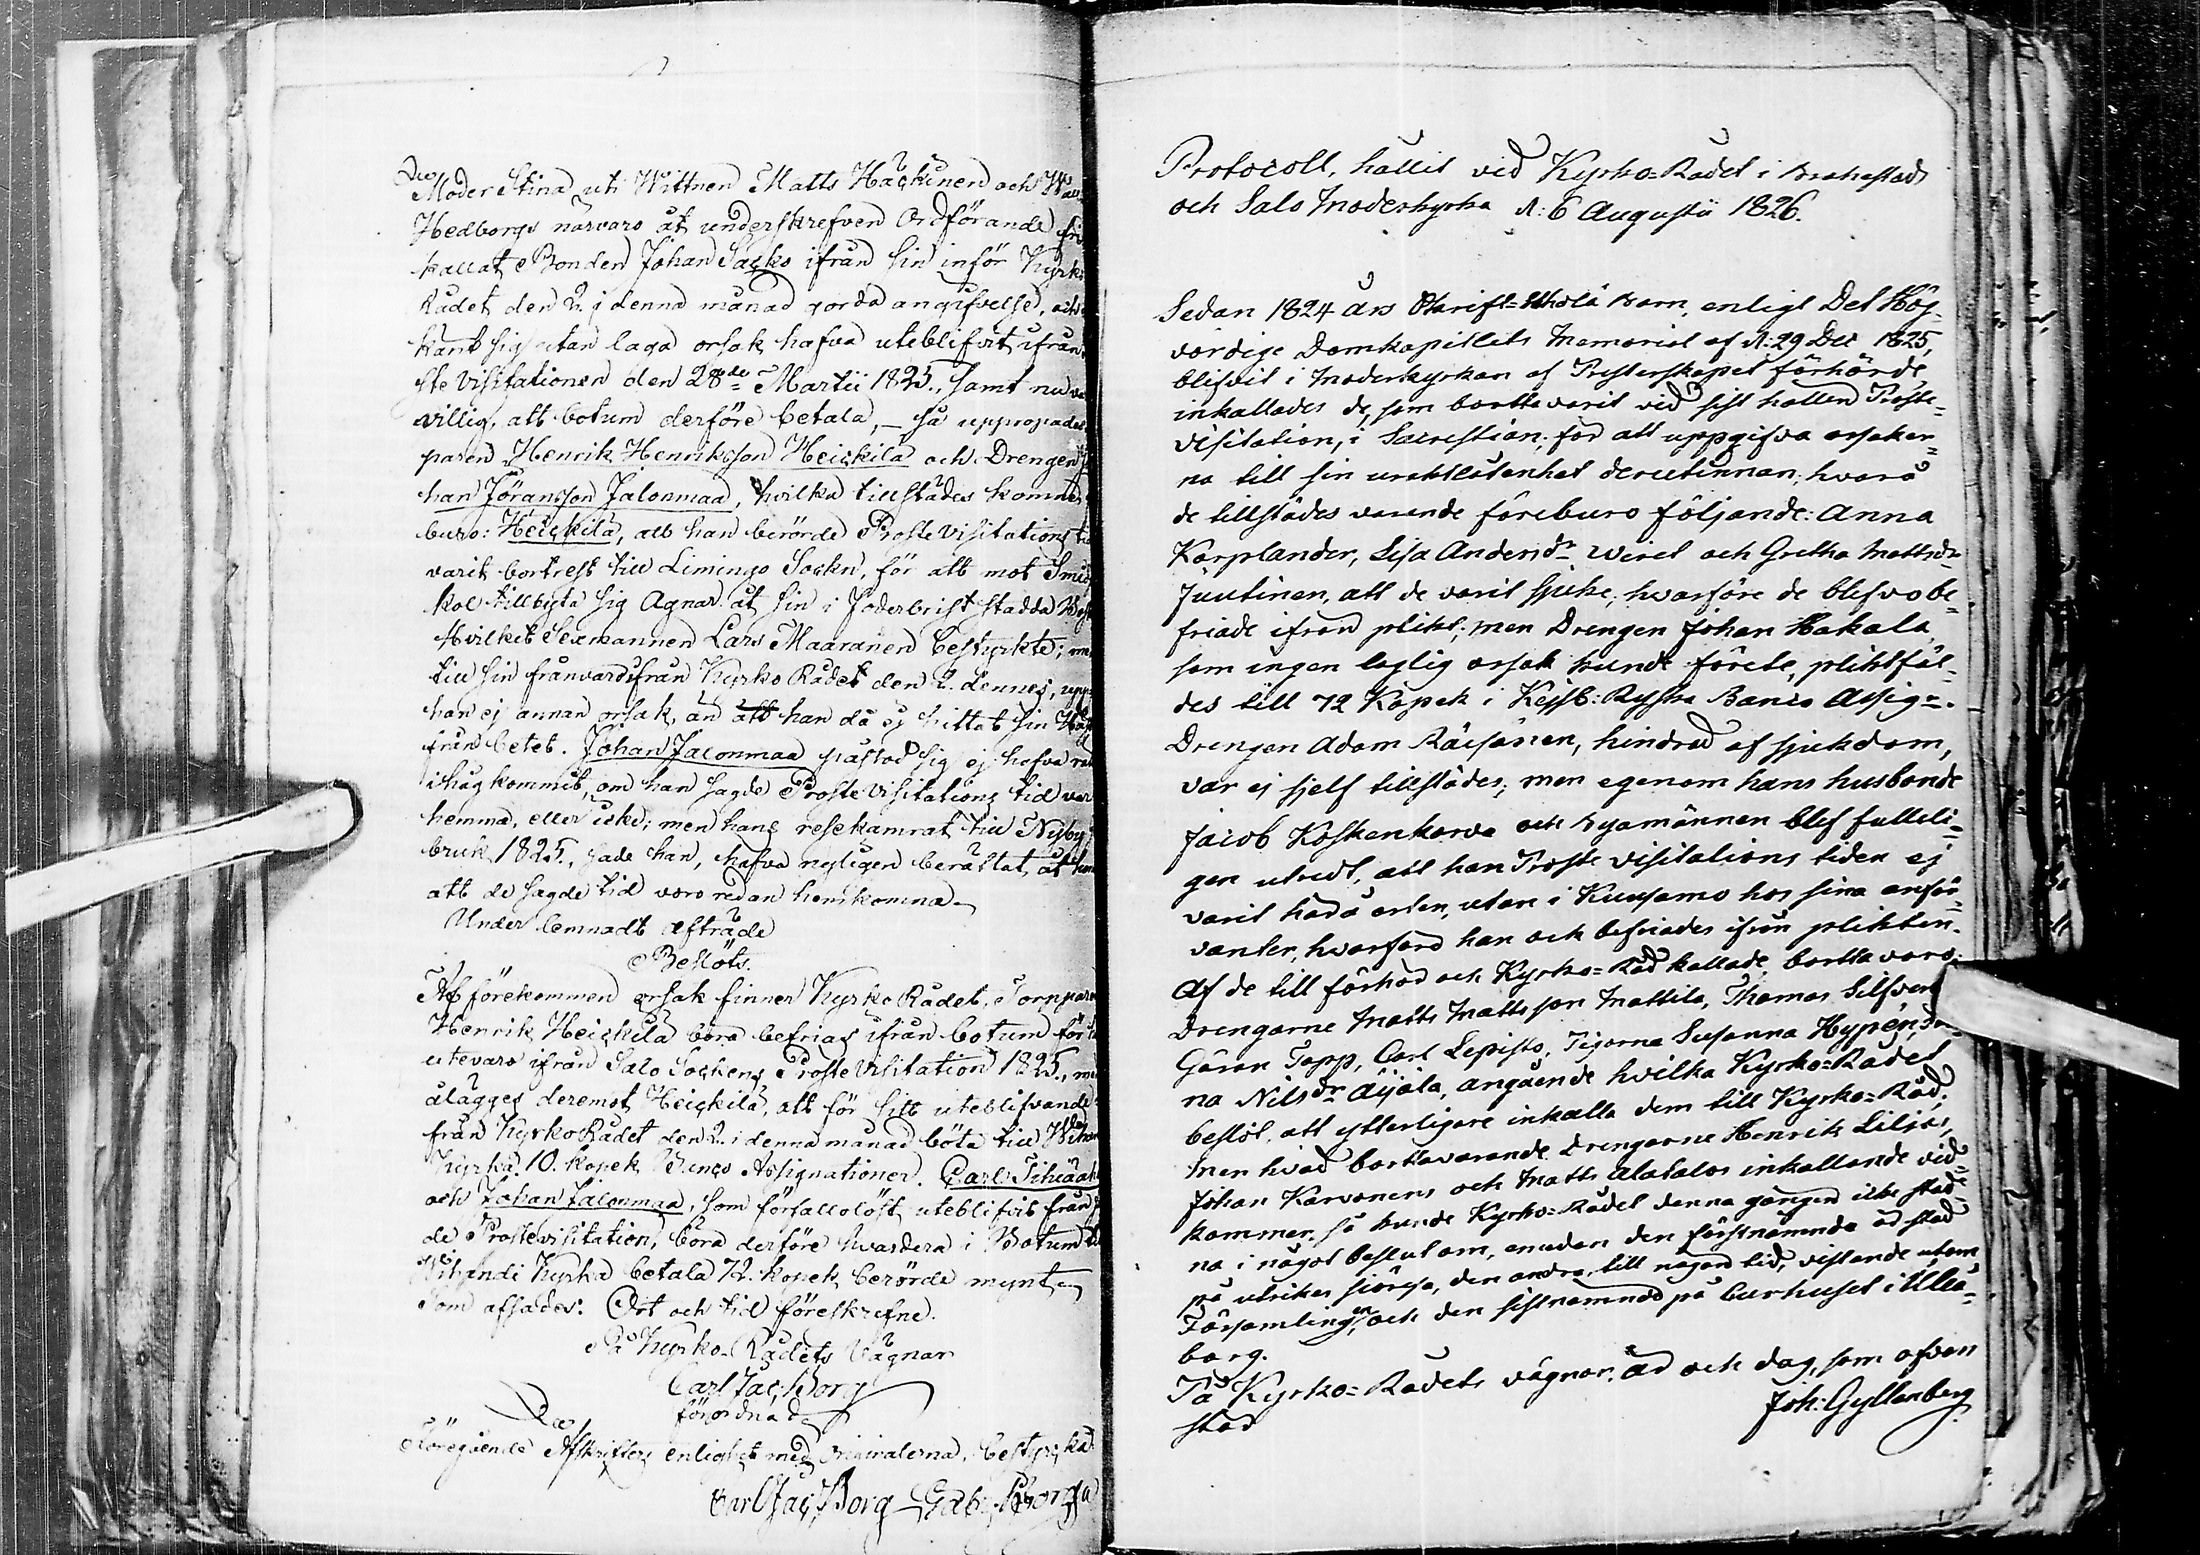 Moder Stina uti Wittnen Matts Häckinen och
Hedborgs närvaro åt underskrefven Ordförande
kallat Bonden Johan Sacko ifrån sin inför Kyrko
Rådet den 2. i denna månad gorda angifvelse,
känt sig utan laga orsak hafva uteblifvit ifrån
ste Visitationen den 28de Martii 1825., samt nu
villig, att botum derföre betala, – så uppropades
paren Henrik Henriksson Heickilä och Drengen
han Jöransson Jalonmaa, hvilka tillstädes komne,
buro: Heickilä, att han berörde Proste Visitations
varit bortrest till Limingo Sockn, för att mot
kol tillbyta sig Agnar åt sin i foderbrist stadda
Hvilket Sexmannen Lars Maaranen bestyrkte;
till sin frånvaro ifrån Kyrko Rådet den 2. dennes,
han ej annan orsak, än att han då ej hittat sin
från betet. Johan Jalonmaa påstod sig ej hafva
ihåg kommit, om han sagde Proste Visitations tid
hemma, eller icke; men hans resekamrat till Nyby
bruk 1825., sade han, hafva nyligen berättat,
att de sagde tid voro redan hemkomna.
Under lemnadt afträde
Beslöts.
Af förekommen orsak finner Kyrko Rådet,
Henrik Heickilä böra befrias ifrån botum för
utevaro ifrån Salo Sockens Proste Visitation 1825.,
ålägges deremot Heickilä, att för sitt uteblifvande
från Kyrko Rådet den 2. i denna månad böta till
Kyrka 10. kopek Banco Assignationer. Carl
och Johan Jalonmaa, som förfallolöst uteblifvit från
de Prostevisitation, böra derföre hvardera i Botum
Wihandi Kyrka betala 72. kopek berörde mynt.
Som afsades: Ort och tid föreskrefne.
På Kyrko-Rådets Vägnar
Carl Jac. Borg
förordnad
Föregående Afskrifters enlighet med originalerna, bestyrka
Carl Jac. Borg Gab. Borg
Protocoll, hållit vid Kyrko=Rådet i Brahestads
och Salo Moderkyrka d: 6 Augustii 1826.
Sedan 1824 års Skrift=Skole Barn, enligt Det Hög-
vördige Domkapitlets Memorial af d: 29 Dec 1825,
blifvit i Moderkyrkan af Presterskapet förhörde,
inkallades de, som borttavarit vid sist hallen Proste=
visitation, i Sacrestian, för att uppgifva orsaker=
na till sin uraktlåtenhet derutinnan, hvarå
de tillstädes varande föreburo följande: Anna
Karplander, Lisa Andersdr Wiret och Gretha Mattsdr
Juutinen, att de varit sjuke, hvarföre de blefvo be=
friade ifrån plikt; men Drengen Johan Hakala,
som ingen laglig orsak kunde förete, pliktfäl=
des till 72 Kopek i Kejs: Ryska Banco Assig=.
Drengen Adam Räisänen, hindrad af sjukdom,
var ej sjelf tillstädes; men egenom hans husbonde
Jacob Koskenkorva och Byamännen blef fulleli=
gen utredt, att han Proste visitations tiden ej
varit här å orten, utan i Kuusamo hos sina anför=
vanter, hvarföre han ock befriades ifrån plikten.
Af de till förhör och Kyrko=Råd kallade, bortta voro:
Drengarne Matts Mattsson Mattila, Thomas Silfver
Göran Tapp, Carl Lepisto, Pigorna Susanna Hypén,
na Nilsdr Äijälä, angående hvilka Kyrko=Rådet
beslöt, att ytterligare inkalla dem till Kyrko=Råd;
men hvad borttavarande Drengarne Henrik Liljas,
Johan Karvonens och Matts Alatalos inkallande vid=
kommer, så kunde Kyrko=Rådet denna gången icke stad=
na i något beslut om, emedan den förstnamnde är stad
på utrikes sjöresa, den andra, till någon tid, vistande utom
Församlingen, och den sistnamnde på Curhuset i Uleå=
borg.
På Kyrko=Rådets vägnar, år och dag, som ofvan
står
Joh: Gyllenberg